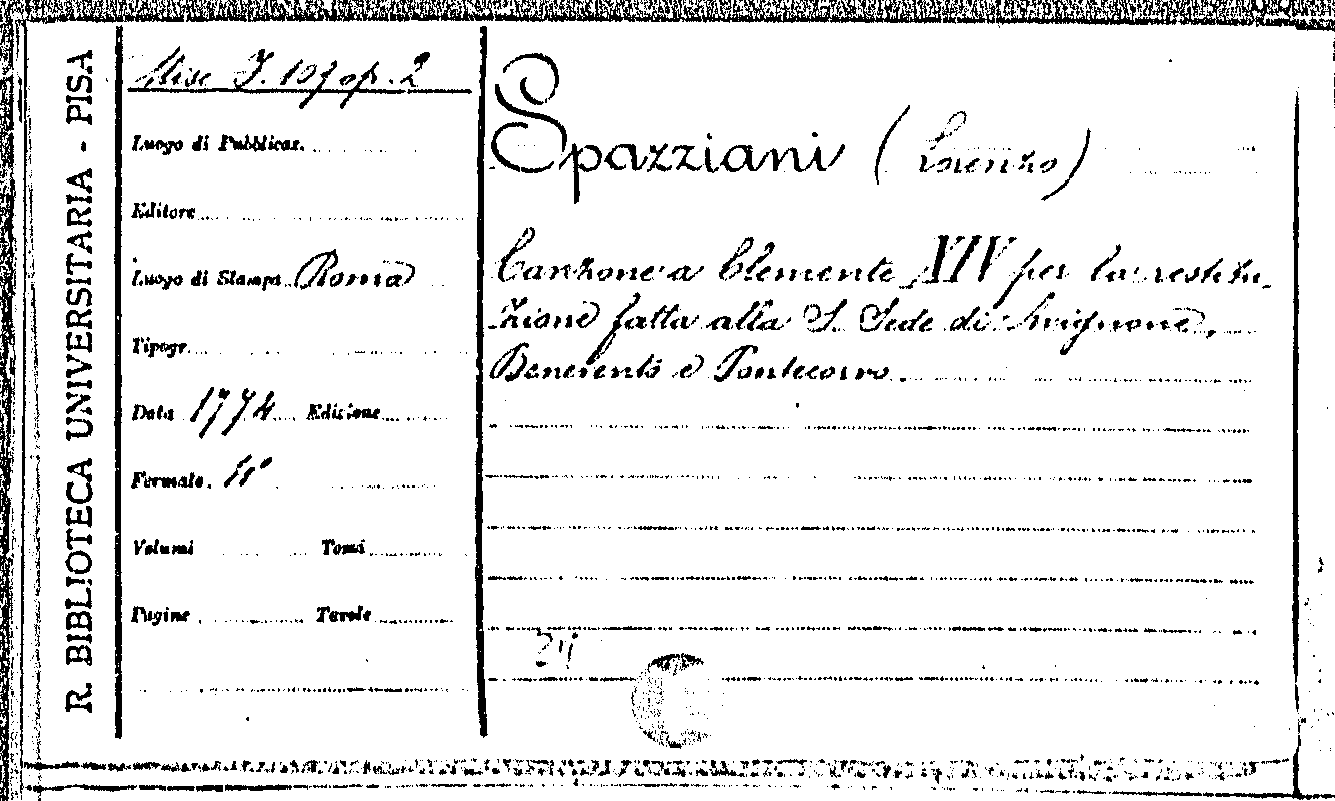 R. BIBLIOTECA UNIVERSITARIA - PISA
Misc. J. 107 op. 2
Luogo di Pubblicaz.
Editore
Luogo di Stampa Roma
Tipogr.
Data 1774 Edizione
Formato. 4°
Volumi Tomi
Pagine Tavole
Spazziani (Lorenzo)
Canzone a Clemente XIV per la restitu-
zione fatta alla S. Sede di Avignone,
Benevento e Pontecorvo.